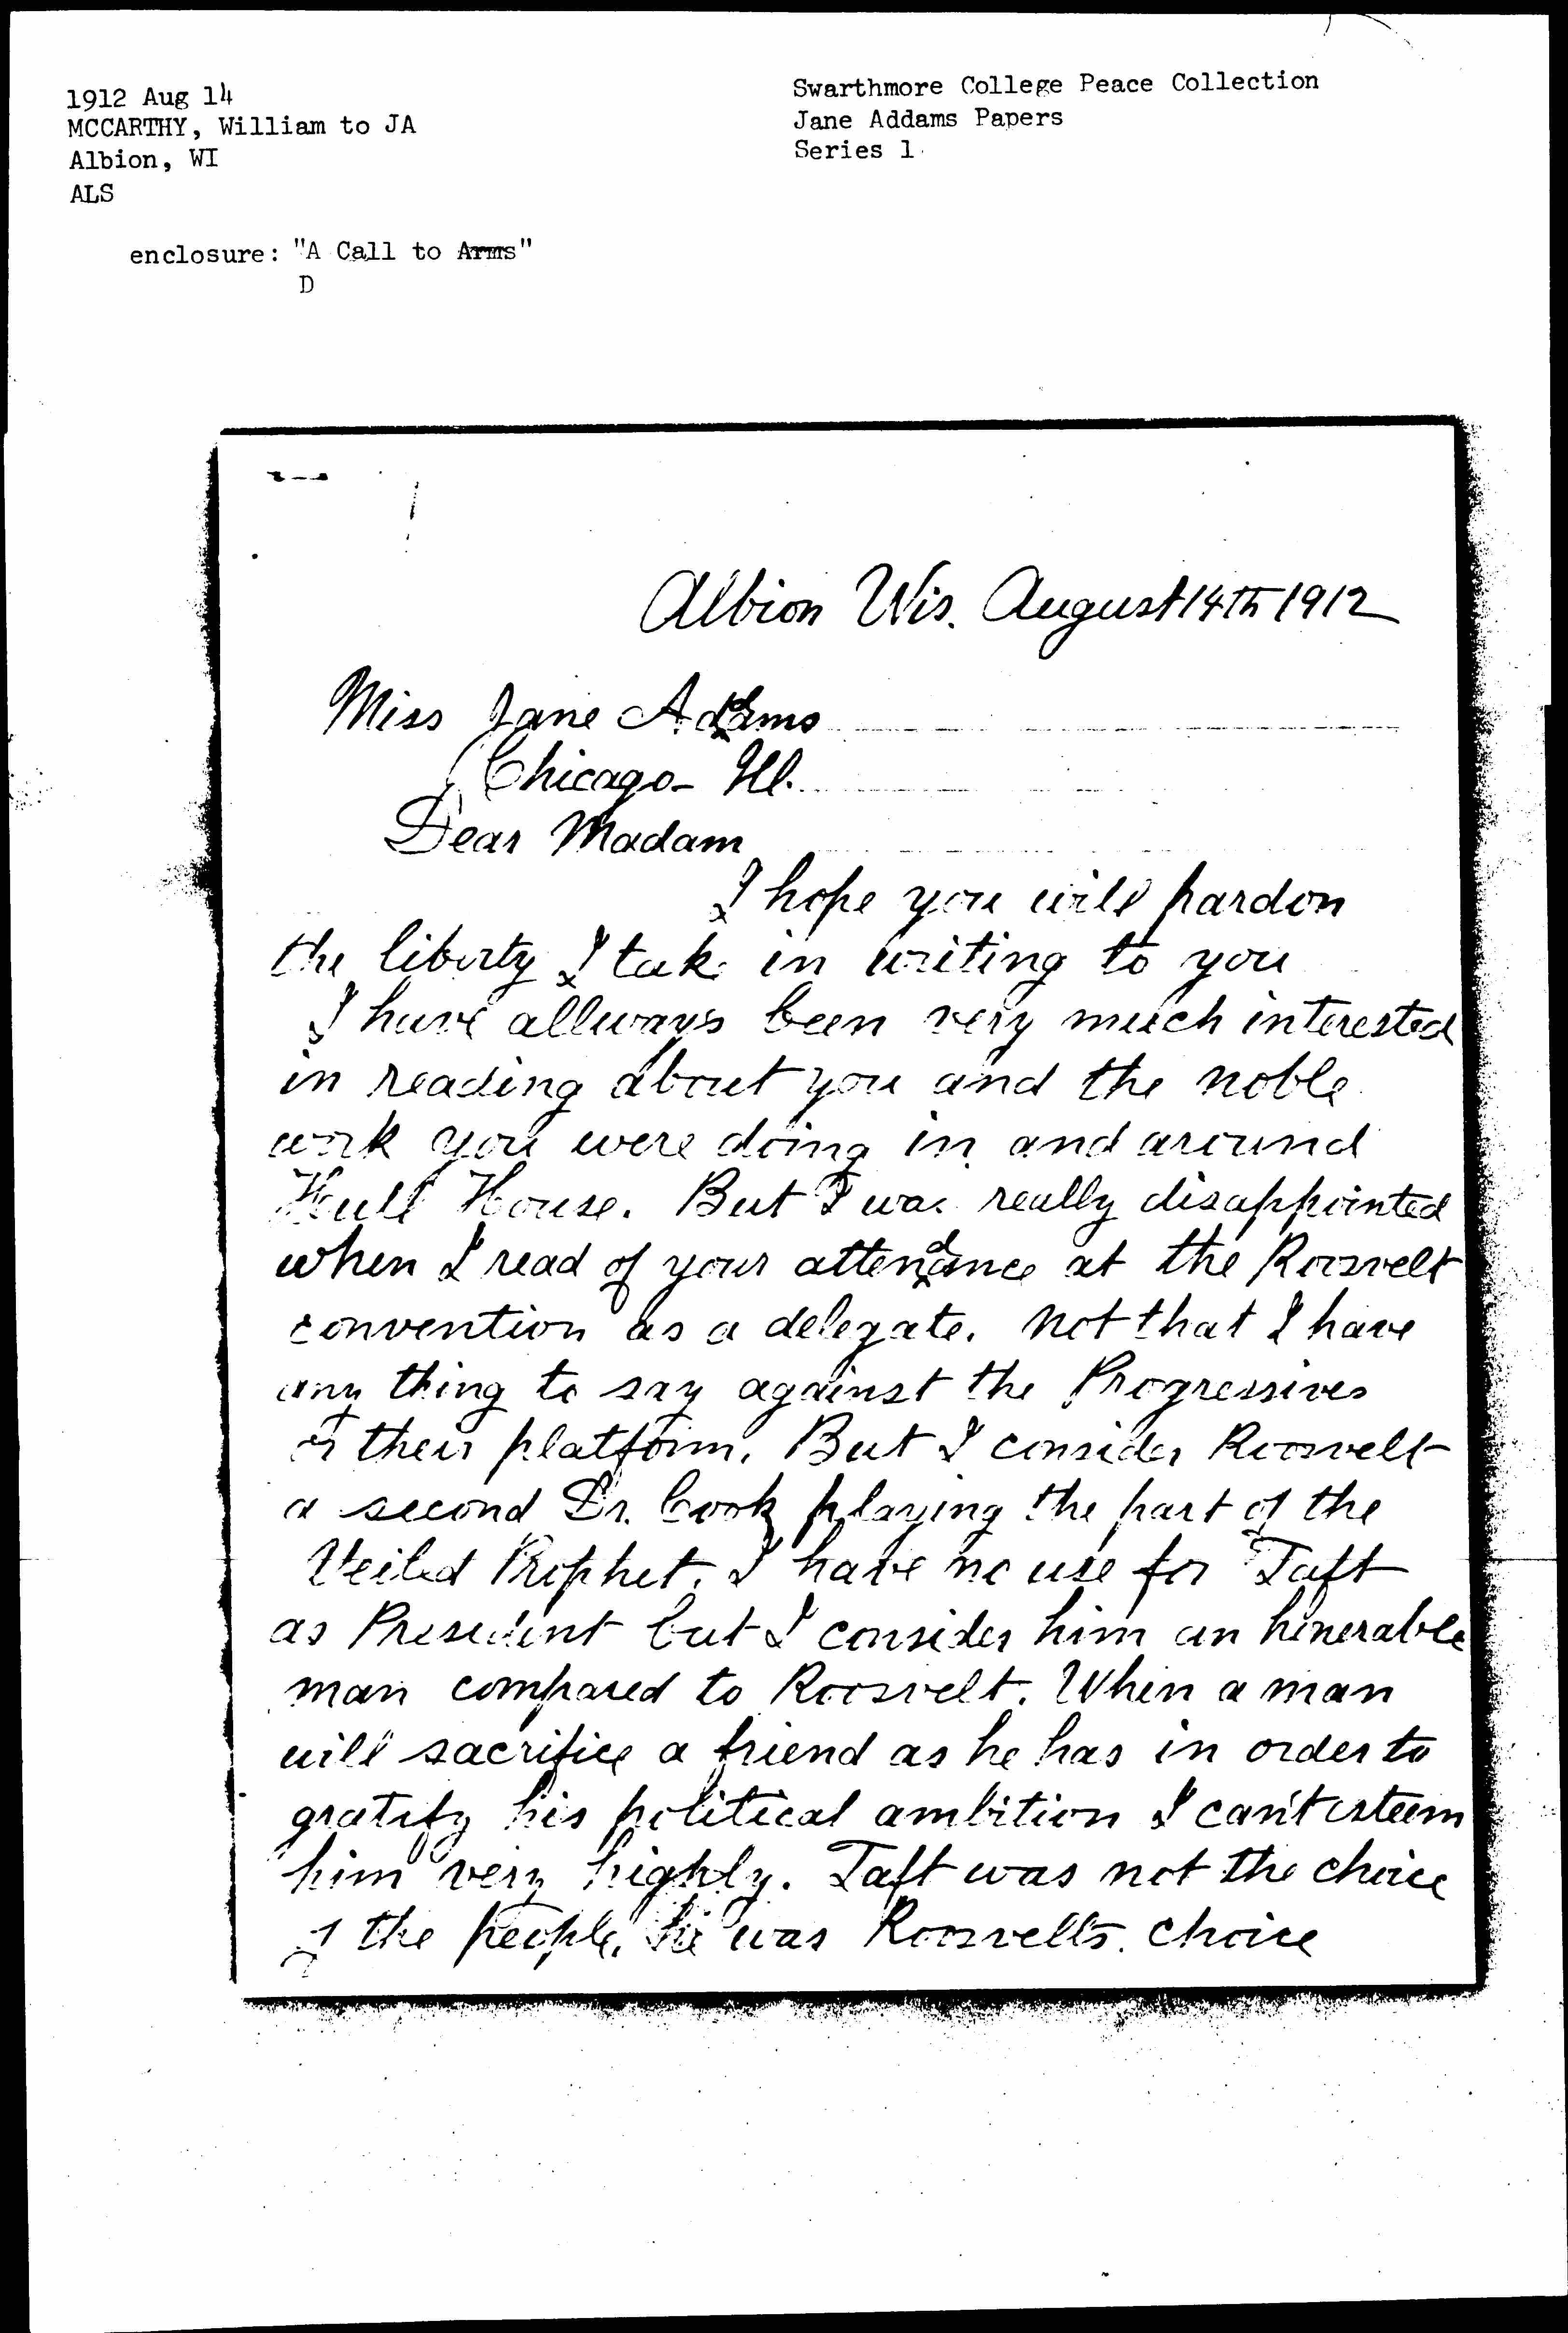 1912 Aug 14
MCCARTHY, William to JA
Albion, WI
ALS
enclosure: "A Call to Arms"
D
Swarthmore College Peace Collection
Jane Addams Papers
Series 1
Albion Wis. August 14th 1912
Miss Jane Addams
Chicago- Ill.
Dear Madam
I hope you will pardon
the liberty I take in writing to you
I have allways been very much interested
in reading about you and the noble
work you were doing in and around
Hull House. But I was really disappointed
when I read of your attendance at the Roosvelt
convention as a delegate. Not that I have
any thing to say against the Progressives
or their platform. But I consider Roosvelt
a second Dr. Cook playing the part of the
Veiled Prophet. I have no use for Taft
as President but I consider him an honerable
man compared to Roosvelt. When a man
will sacrifice a friend as he has in order to
gratify his political ambition I can't esteem
him very highly. Taft was not the choice
of the people, he was Roosvelts. choice